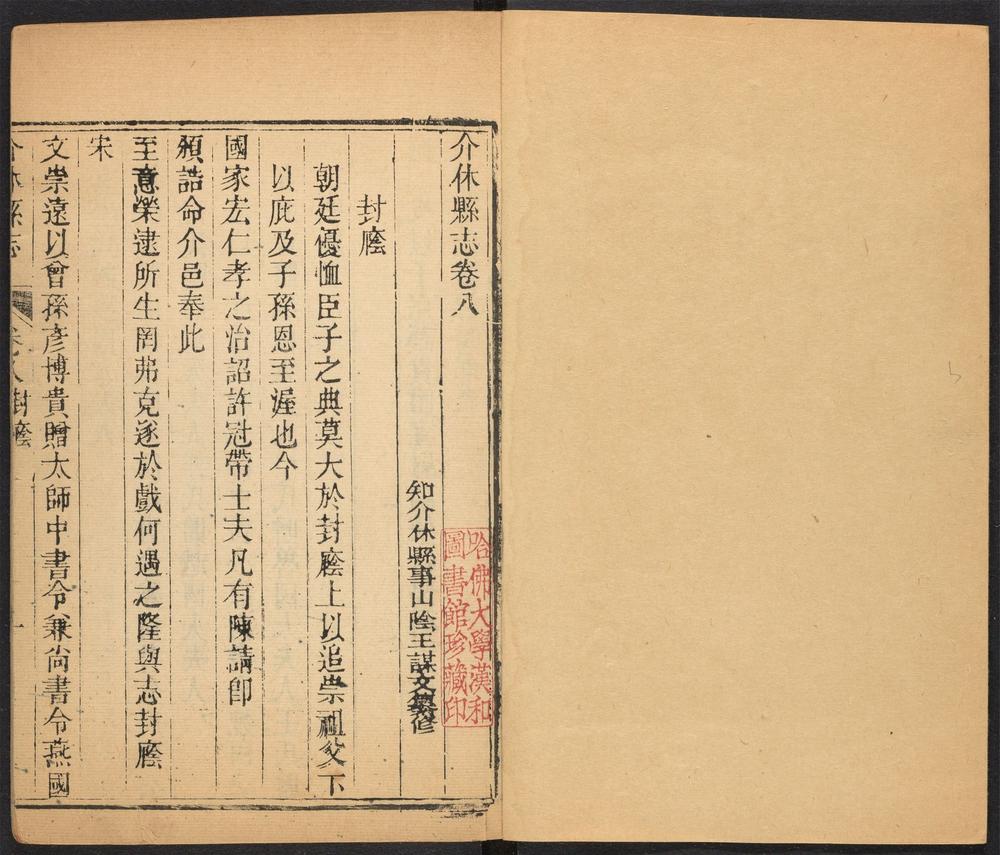 介休縣志卷八
知介休縣事山陰王謀文纂修
封廕
朝廷優恤臣子之典莫大於封廕上以追崇祖父下
以庇及子孫恩至渥也今
國家宏仁孝之治詔許冠帶士夫凡有陳請卽
頒誥命介邑奉此
至意榮逮所生罔弗克遂於戲何遇之隆與志封廕
宋
文崇遠以曾孫彥博貴贈太師中書令兼尚書令燕國
介休縣志
卷八封廕
一
哈佛大學漢和
圖書館珍藏印